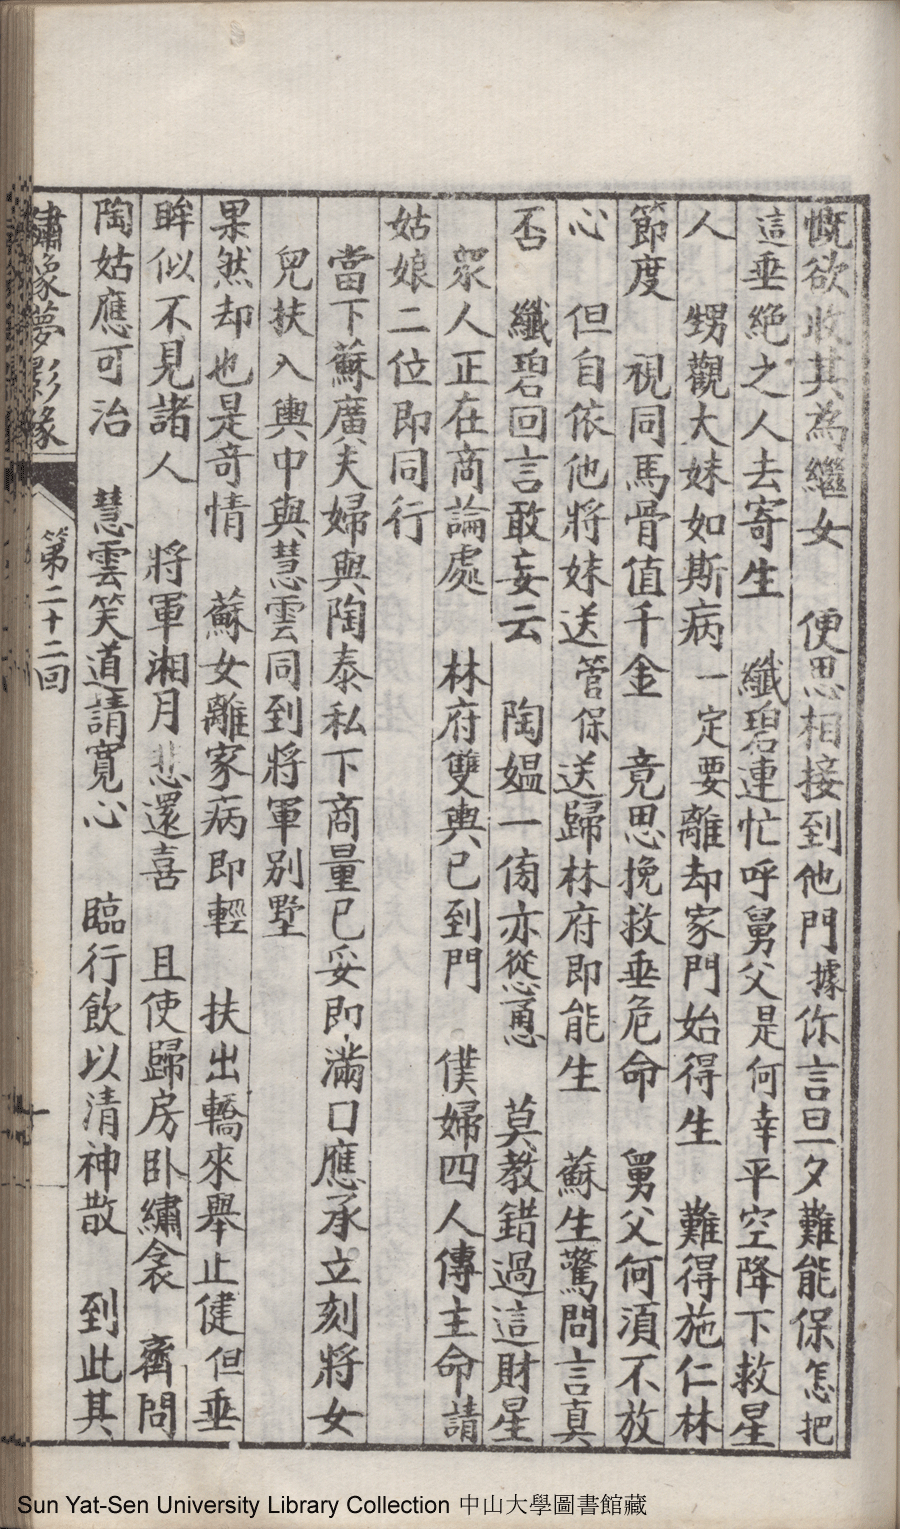 慨欲收其為繼女　便思相接到他門據你言旦夕難能保怎把
這垂絕之人去寄生　纖碧連忙呼舅父是何幸平空降下救星
人　甥觀大妹如斯病一定要離却家門始得生　難得施仁林
節度　視同馬骨值千金　竟思挽救垂危命　舅父何須不放
心　但自依他將妹送管保送歸林府即能生　蘇生驚問言真
否　纖碧回言敢妄云　陶媼一傍亦慫恿　莫教錯過這財星
眾人正在商論處　林府雙輿已到門　僕婦四人傳主命請
姑娘二位即同行
當下蘇廣夫婦與陶泰私下商量已妥即滿口應承立刻將女
兒扶入輿中與慧雲同到將軍別墅
果然却也是奇情　蘇女離家病即輕　扶出轎來舉止健但垂
眸似不見諸人　將軍湘月悲還喜　且使歸房卧繡衾　齊問
陶姑應可治　慧雲笑道請寬心　臨行飲以清神散　到此其
繡像夢影緣　第二十二回
Sun Yat-Sen University Library Collection 中山大學圖書館藏